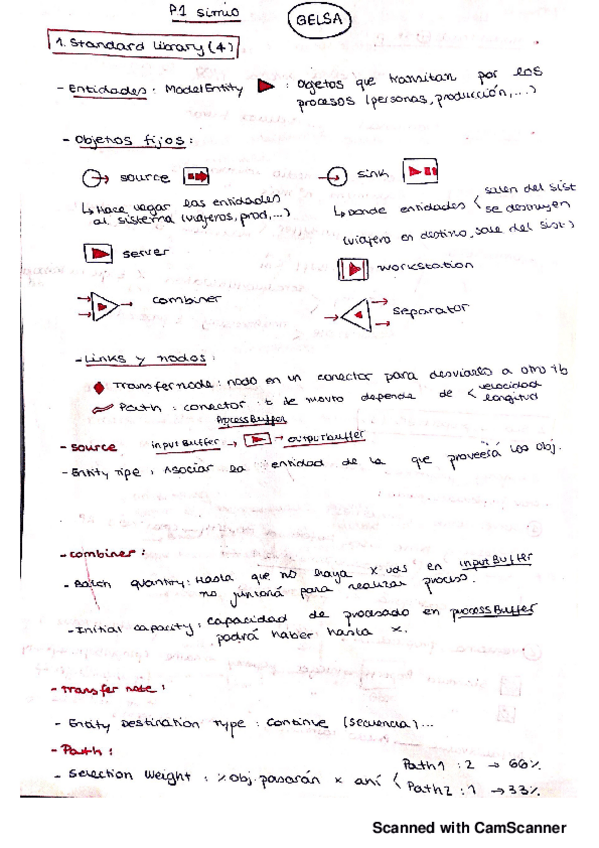 P1 simio
GELSA
1. Standard library (4)
- Entidades: ModelEntity : Objetos que transitan por los
procesos (personas, producción,...)
- Objetos fijos:
source
sink
↳ Hace llegar las entidades
al sistema (viajeros, prod,...)
↳ Donde entidades < salen del sist
se destruyen
(viajero en destino, sale del sist)
server
workstation
combiner
separator
- Links y nodos:
Transfernode: nodo en un conector para desviarles a otro
Path: conector. t de movto depende de < velocidad
longitud
ProcessBuffer
- Source inputBuffer → → outputbuffer
- Entity Tipe: Asociar la entidad de la que proveerá los obj.
- Combiner:
- Batch quantity: Hasta que no haya x uds en inputBuffer
no funcioná para realizar proceso.
- Initial capacity: capacidad de procesado en processBuffer
podrá haber hasta x.
- Transfer note:
- Entity Destination Type: Continue (secuencia)...
- Path:
- Selection Weight: % obj. pasarán x ahí < Path1: 2 → 66%
Path2: 1 → 33%
Scanned with CamScanner